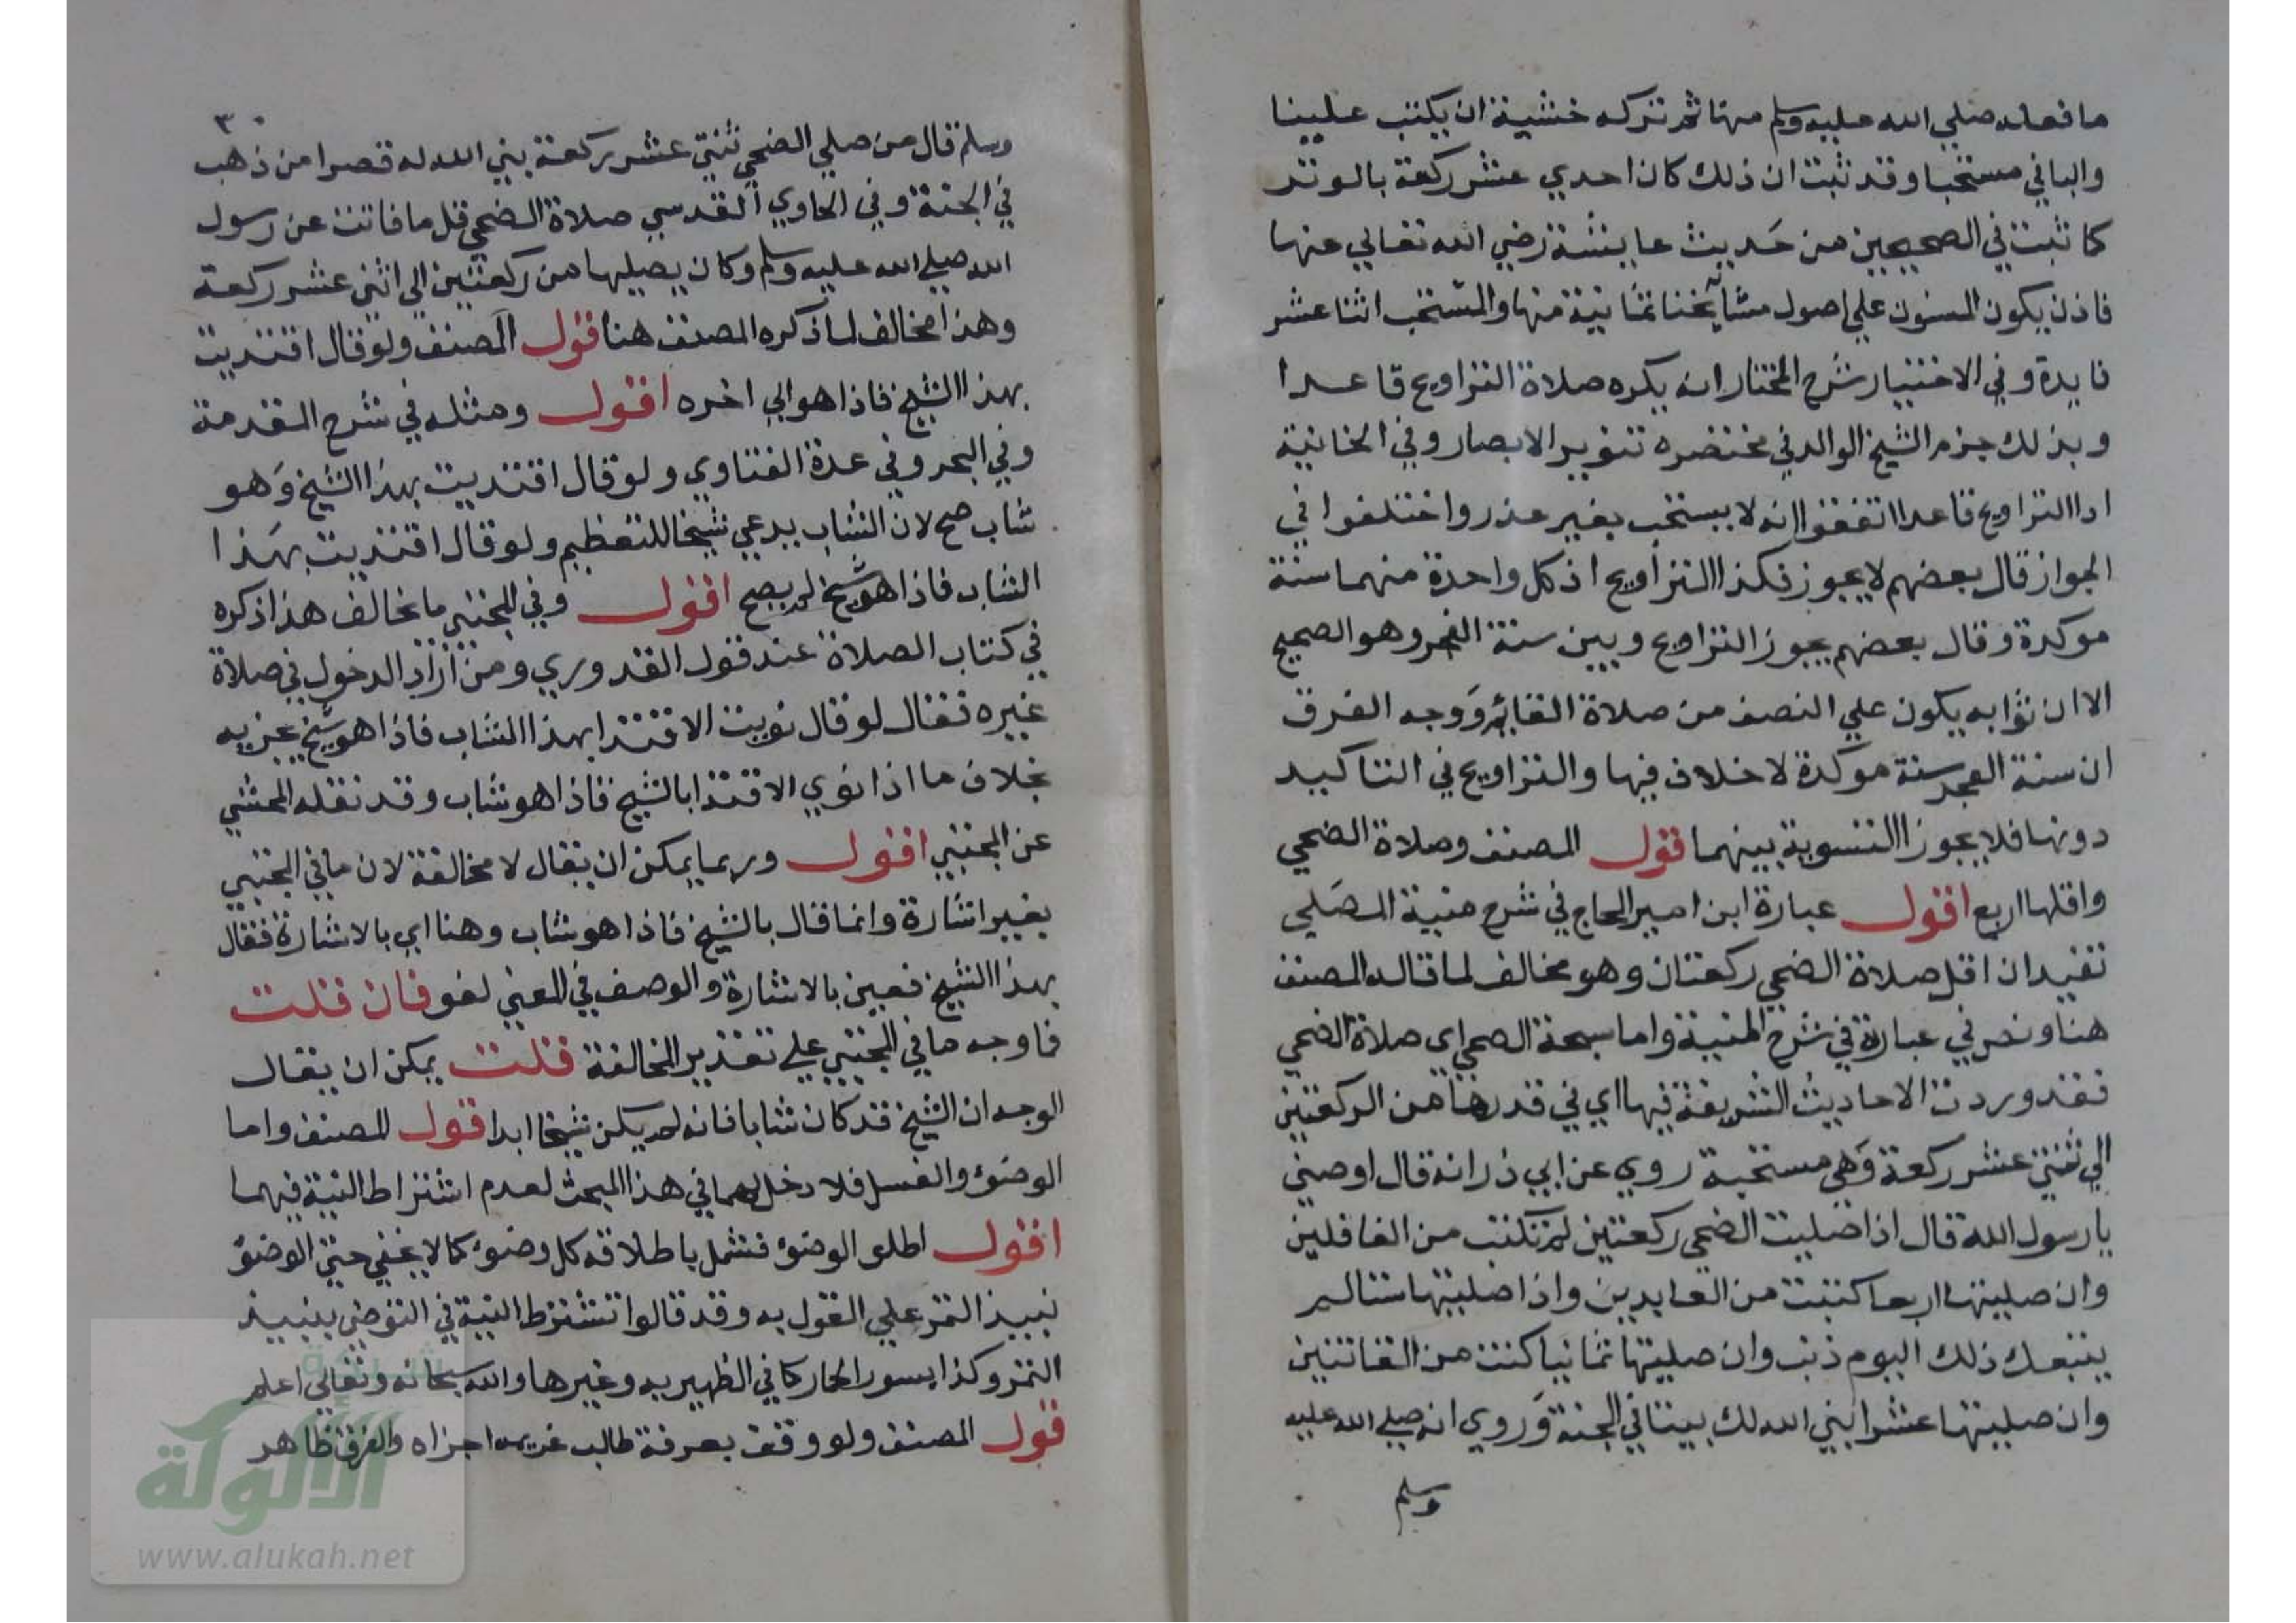 ما فعله صلي الله عليه وسلم منها ثم تركه خشية ان يكتب علينا
والباقي مستحبا وقد ثبت ان ذلك كان احدي عشر ركعة بالوتر
كما ثبت في الصحيحين من حديث عايشة رضي الله تعالي عنها
فاذن يكون المسنون علي اصول مشايخنا ثمانية منها والمستحب اثنا عشر
فايدة وفي الاختيار شرح المختار انه يكره صلاة التراويح قاعدا
وبذلك جزم الشيخ الوالد في مختصره تنوير الابصار وفي الخانية
ادا التراويح قاعدا اتفقوا انه لا يستحب بغير عذر واختلفوا في
الجواز قال بعضهم لا يجوز فكذا التراويح اذ كل واحدة منهما سنة
موكدة وقال بعضهم يجوز التراويح وبين سنة الفجر وهو الصحيح
الا ان ثوابه يكون علي النصف من صلاة القائم ووجه الفرق
ان سنة الفجر سنة موكدة لا خلاف فيها والتراويح في التاكيد
دونها فلا يجوز التسوية بينهما قول المصنف وصلاة الضحي
واقلها اربع اقول عبارة ابن امير الحاج في شرح منية المصلي
تفيد ان اقل صلاة الضحي ركعتان وهو مخالف لما قاله المصنف
هنا ونص في عبارة في شرح المنية واما سبحة الضحي اي صلاة الضحي
فقد وردت الاحاديث الشريفة فيها اي في قدرها من الركعتين
الي ثنتي عشر ركعة وهي مستحبة روي عن ابي ذر انه قال اوصني
يا رسول الله قال اذا صليت الضحي ركعتين لم تكتب من الغافلين
وان صليتها اربعا كتبت من العابدين واذا صليتها ستا لم
يتبعك ذلك اليوم ذنب وان صليتها ثمانيا كتبت من القانتين
وان صليتها عشرا بني الله لك بيتا في الجنة وروي انه صلي الله عليه
وسلم
٣٠
وسلم قال من صلي الضحي ثنتي عشر ركعة بني الله له قصرا من ذهب
في الجنة وفي الحاوي القدسي صلاة الضحي قل ما فاتت عن رسول
الله صلي الله عليه وسلم وكان يصليها من ركعتين الي اثني عشر ركعة
وهذا مخالف لما ذكره المصنف هنا قول المصنف ولو قال اقتديت
بهذا الشيخ فاذا هو الي اخره اقول ومثله في شرح المقدمة
وفي البحر وفي عدة الفتاوي ولو قال اقتديت بهذا الشيخ وهو
شاب صح لان الشاب يدعي شيخا للتعظيم ولو قال اقتديت بهذا
الشاب فاذا هو شيخ لم يصح اقول وفي المجتبي ما يخالف هذا ذكره
في كتاب الصلاة عند قول القدوري ومن اراد الدخول في صلاة
غيره فقال لو قال نويت الاقتدا بهذا الشاب فاذا هو شيخ يجزيه
بخلاف ما اذا نوي الاقتدا بالشيخ فاذا هو شاب وقد نقله المحشي
عن المجتبي اقول وربما يمكن ان يقال لا مخالفة لان ما في المجتبي
بغير اشارة وانما قال بالشيخ فاذا هو شاب وهنا اي بالاشارة فقال
بهذا الشيخ فعين بالاشارة والوصف في المعين لغو فان قلت
فما وجه ما في المجتبي علي تقدير المخالفة قلت يمكن ان يقال
الوجه ان الشيخ قد كان شابا فانه لم يكن شيخا ابدا قول المصنف واما
الوضوء والغسل فلا دخل لهما في هذا المبحث لعدم اشتراط النية فيهما
اقول اطلق الوضوء فشمل باطلاقه كل وضوء كما لا يخفي حتي الوضوء
نبيذ التمر علي القول به وقد قالوا تشترط النية في التوضي بنبيذ
التمر وكذا بسور الحمار كما في الظهيريه وغيرها والله سبحانه وتعالي اعلم
قول المصنف ولو وقف بعرفة طالب غريمه اجزاه والفرق ظاهر
شبكة
الألوكة
www.alukah.net